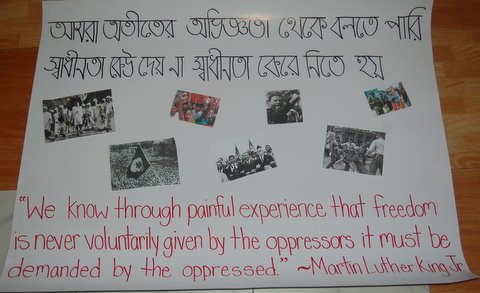 আমরা অতীতের অভিজ্ঞতা থেকে বলতে পারি
স্বাধীনতা কেউ দেয় না স্বাধীনতা কেরে নিতে হয়
"We know through painful experience that freedom
is never voluntarily given by the oppressors it must be
demanded by the oppressed." ~Martin Luther King Jr.